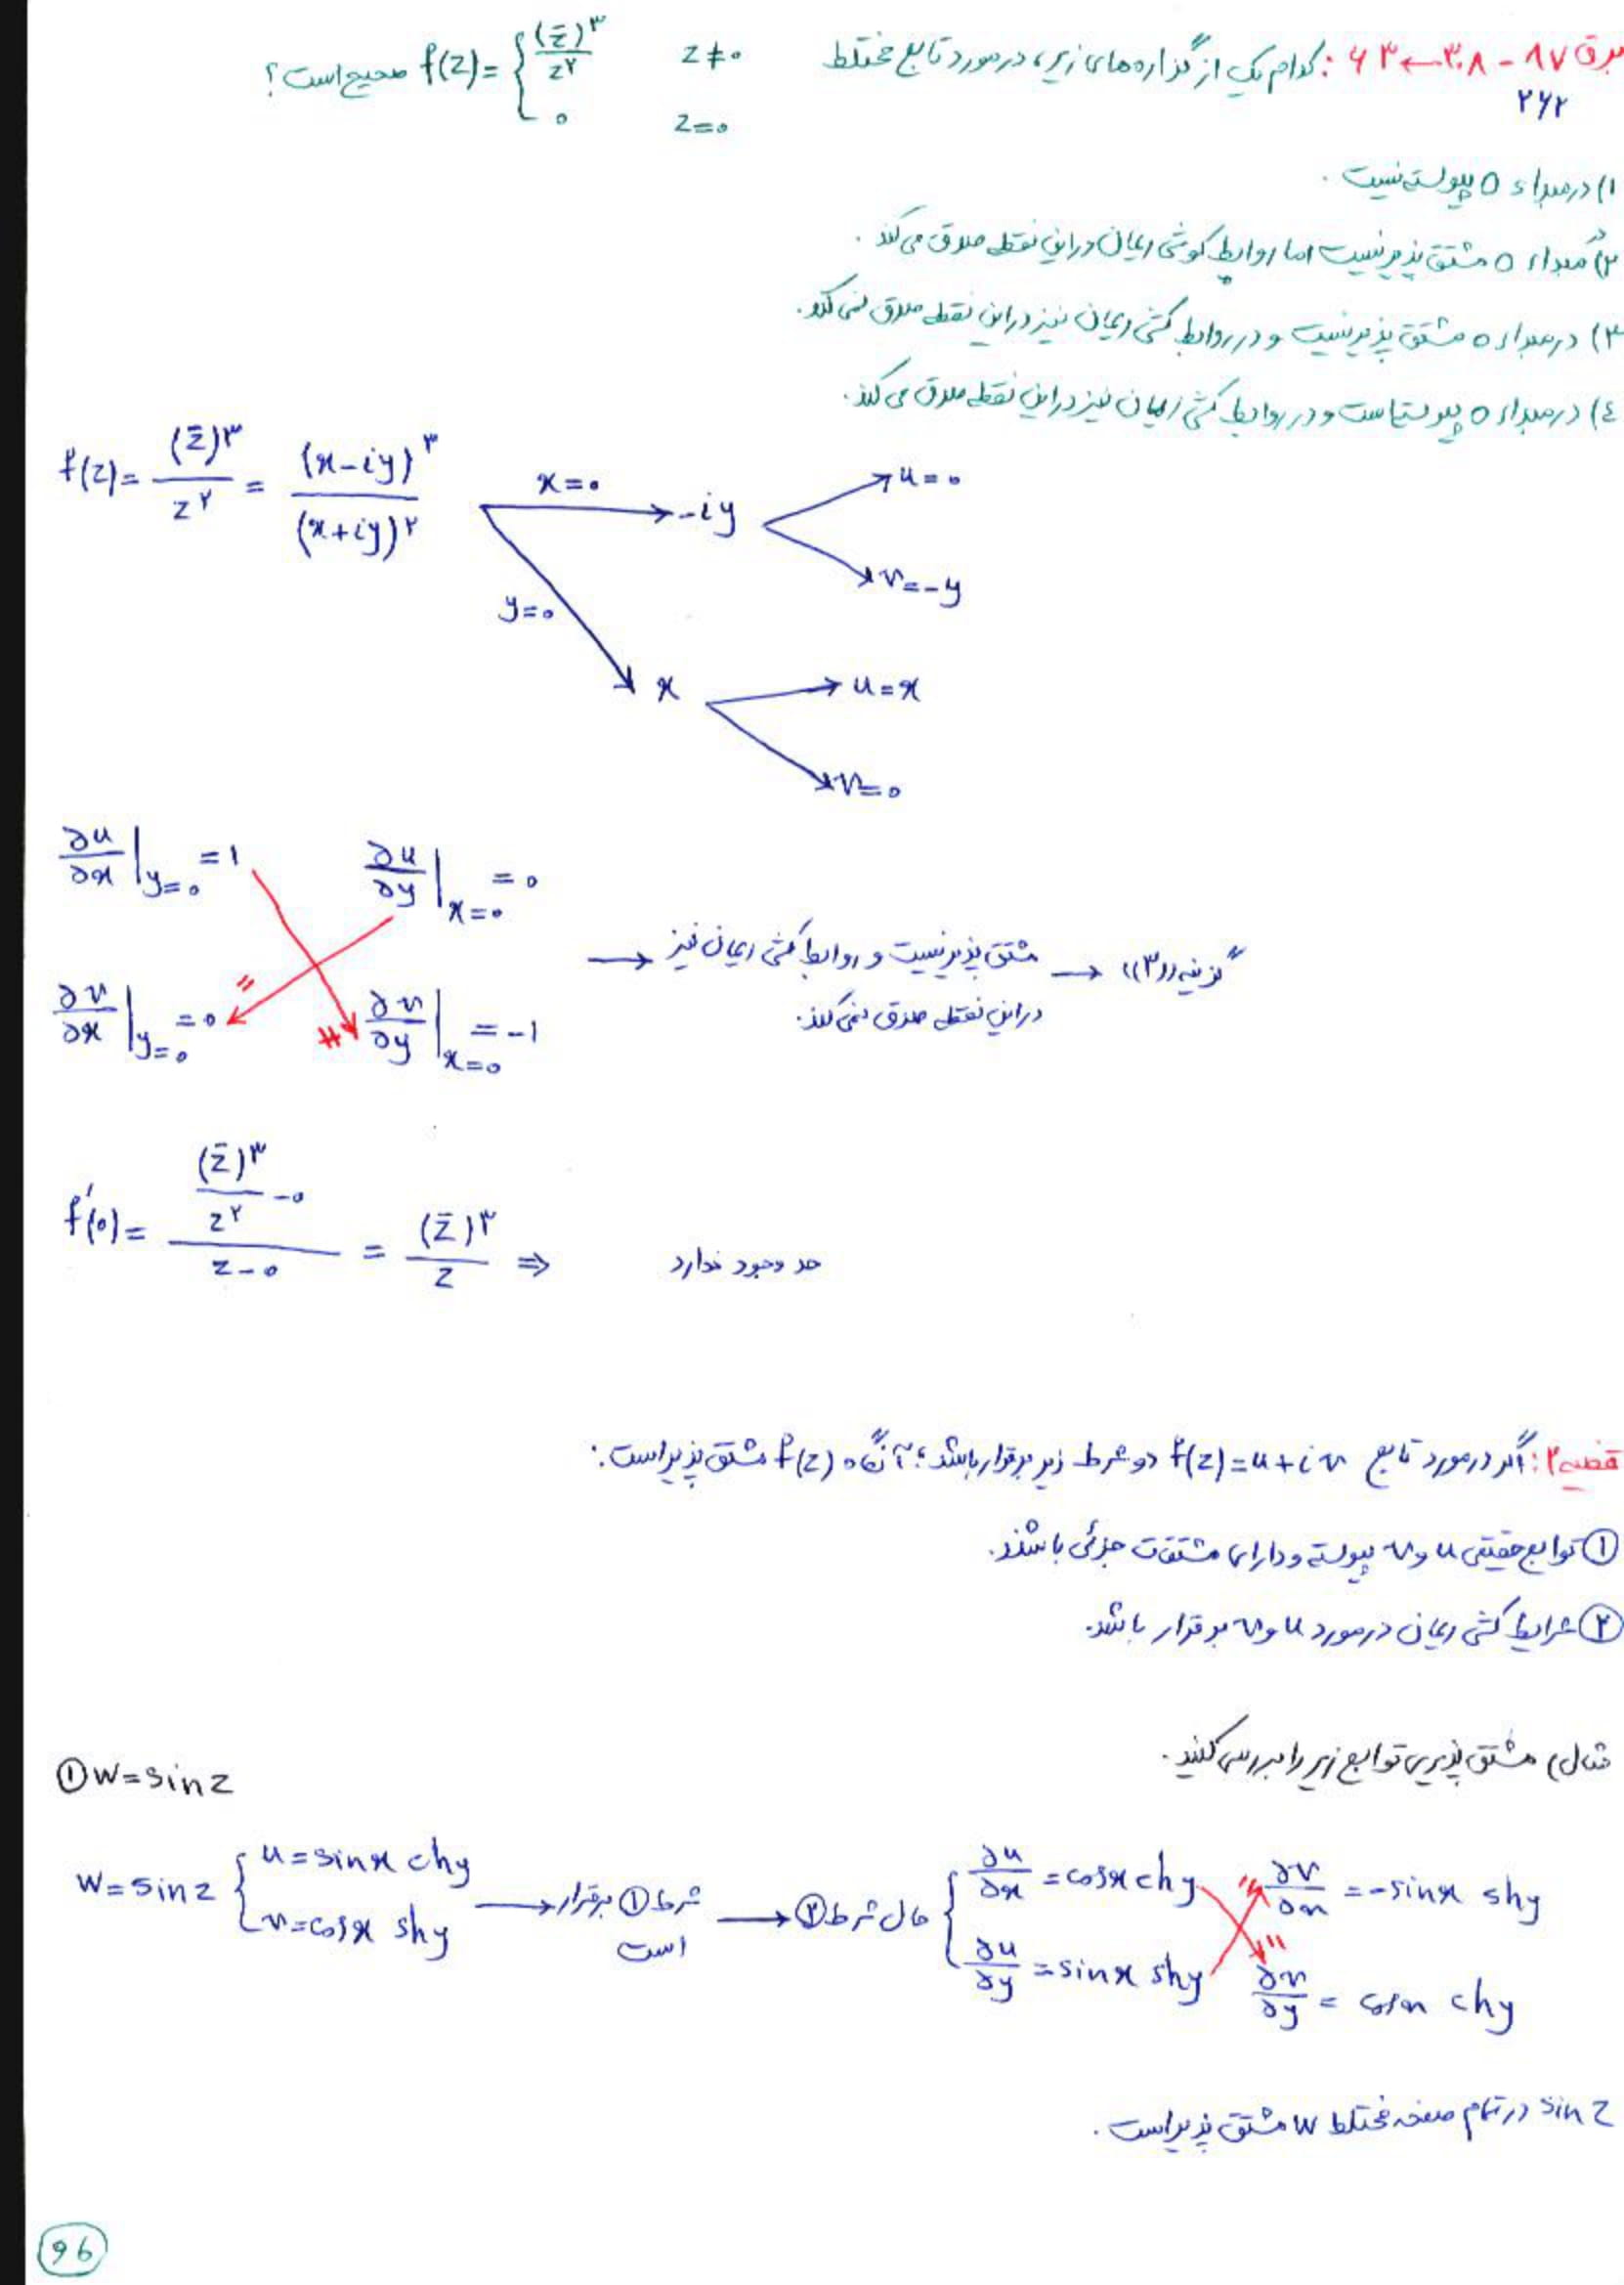 برق ۸۷ - ۳.۸ ← ۶۳ : کدام یک از گزاره های زیر، در مورد تابع مختلط f(z) = { (z̄)^۳ / z^۲   z ≠ ۰ ; ۰   z = ۰ صحیح است؟
۲۶۲
۱) در مبداء ۵ پیوسته نیست .
۲) در مبداء ۵ مشتق پذیر نیست اما روابط کوشی ریمان در این نقطه صدق می کند .
۳) در مبداء ۵ مشتق پذیر نیست و در روابط کشی ریمان نیز در این نقطه صدق نمی کند.
٤) در مبداء ۵ پیوسته است و در روابط کشی ریمان نیز در این نقطه صدق می کند.
f(z) = (z̄)^۳ / z^۲ = (x-iy)^۳ / (x+iy)^۲
x=۰ → -iy → u=۰
v=-y
y=۰ → x → u=x
v=۰
∂u/∂x |y=۰ = 1   ∂u/∂y |x=۰ = ۰
→ مشتق پذیر نیست و روابط کشی ریمان نیز در این نقطه صدق نمی کند. → گزینه ((۳))
∂v/∂x |y=۰ = ۰   ∂v/∂y |x=۰ = -1
f'(۰) = ((z̄)^۳ / z^۲ - ۰) / (z - ۰) = (z̄)^۳ / z ⇒ حد وجود ندارد
قضیه ۲ : اگر در مورد تابع f(z) = u+iv دو شرط زیر برقرار باشد؛ آنگاه f(z) مشتق پذیر است :
① توابع حقیقی u و v پیوسته و دارای مشتقات جزئی باشند.
② شرایط کشی ریمان در مورد u و v برقرار باشد.
مثال) مشتق پذیری توابع زیر را بررسی کنید .
① w = sin z
w = sin z { u = sin x chy ; v = cos x shy → شرط ① برقرار است → حال شرط ② { ∂u/∂x = cos x chy   ∂v/∂x = -sin x shy
∂u/∂y = sin x shy   ∂v/∂y = cos x chy
sin z در تمام صفحه مختلط w مشتق پذیر است .
96